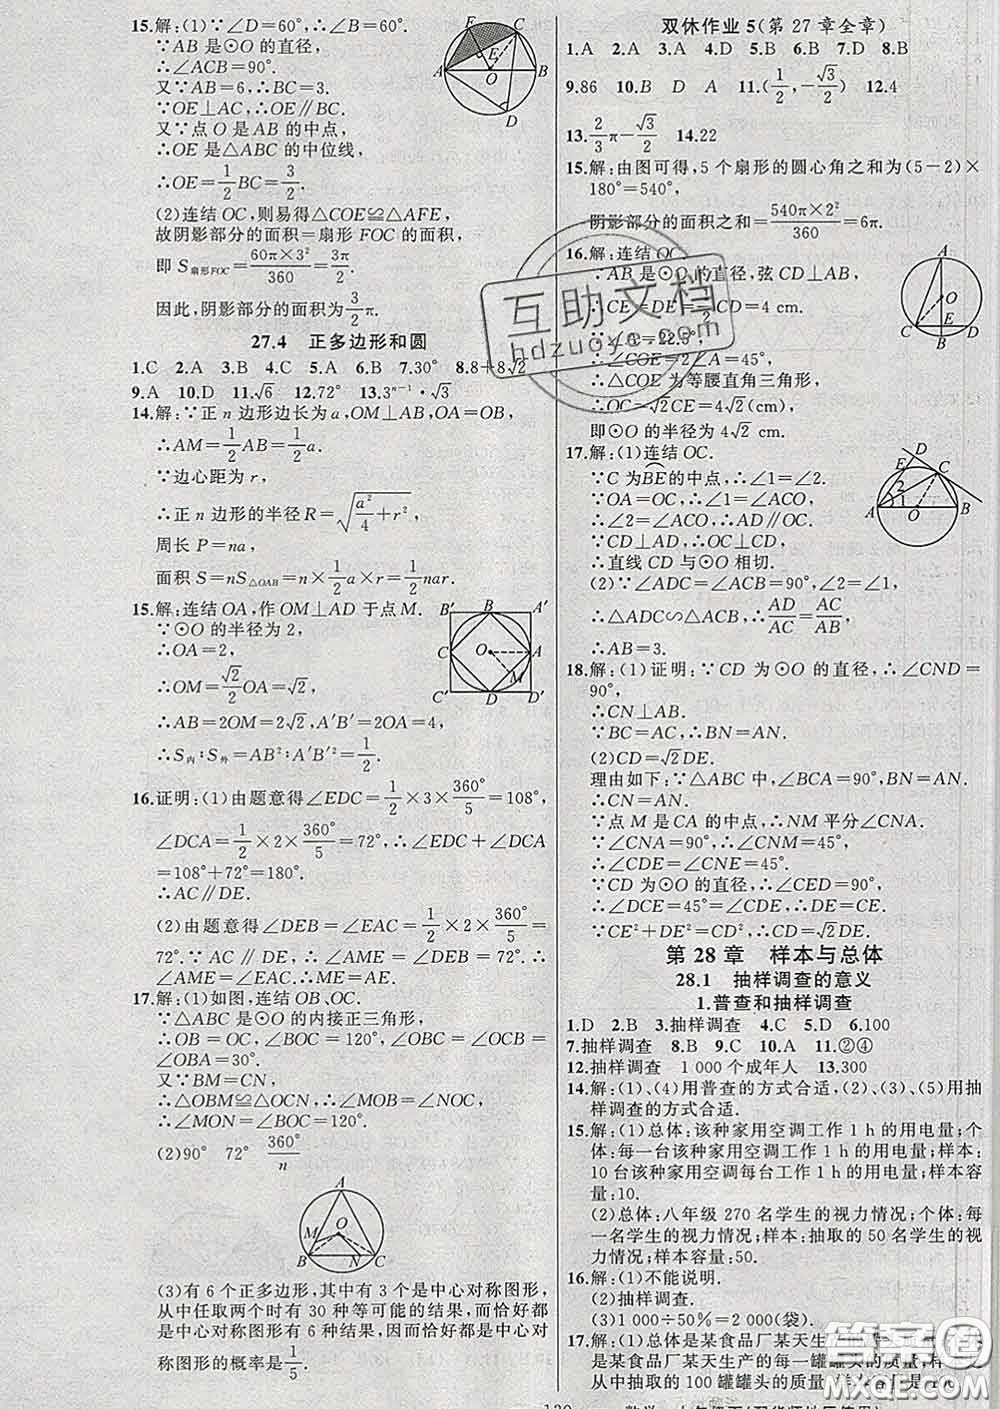 15.解:(1)∵∠D=60°,∴∠B=60°.
∵AB是⊙O的直径,
∴∠ACB=90°.
又∵AB=6,∴BC=3.
∵OE⊥AC,∴OE∥BC.
又∵点O是AB的中点,
∴OE是△ABC的中位线,
∴OE=1/2BC=3/2.
(2)连结OC,则易得△COE≌△AFE,
故阴影部分的面积=扇形FOC的面积,
即S扇形FOC=60π×3²/360=3/2π.
因此,阴影部分的面积为3/2π.
27.4 正多边形和圆
1.C 2.A 3.B 4.C 5.A 6.B 7.30° 8.8+8√2
9.A 10.D 11.√6 12.72° 13.3ⁿ⁻¹·√3
14.解:∵正n边形边长为a,OM⊥AB,OA=OB,
∴AM=1/2AB=1/2a.
∵边心距为r,
∴正n边形的半径R=√(a²/4+r²),
周长P=na,
面积S=nS△OAB=n×1/2a×r=1/2nar.
15.解:连结OA,作OM⊥AD于点M.
∵⊙O的半径为2,
∴OA=2,
∴OM=√2/2OA=√2,
∴AB=2OM=2√2,A′B′=2OA=4,
∴S内∶S外=AB²∶A′B′²=1/2.
16.证明:(1)由题意得∠EDC=1/2×3×360°/5=108°,
∠DCA=1/2×2×360°/5=72°,∴∠EDC+∠DCA
=108°+72°=180°.
∴AC∥DE.
(2)由题意得∠DEB=∠EAC=1/2×2×360°/5=
72°.∵AC∥DE,∴∠DEB=∠AME=
72°,∴∠AME=∠EAC,∴ME=AE.
17.解:(1)如图,连结OB、OC.
∵△ABC是⊙O的内接正三角形,
∴OB=OC,∠BOC=120°,∠OCB=∠OBC=
∠OBA=30°.
又∵BM=CN,
∴△OBM≌△OCN,∴∠MOB=∠NOC,
∴∠MON=∠BOC=120°.
(2)90° 72° 360°/n
(3)有6个正多边形,其中有3个是中心对称图形,
从中任取两个时有30种等可能的结果,而恰好都
是中心对称图形有6种结果,因而恰好都是中心对
称图形的概率是1/5.
双休作业5(第27章全章)
1.A 2.A 3.A 4.D 5.B 6.B 7.D 8.B
9.86 10.B D A 11.(1/2,-√3/2) 12.4
13.2/3π-√3/2 14.22
15.解:由图可得,5个扇形的圆心角之和为(5-2)×
180°=540°,
阴影部分的面积之和=540π×2²/360=6π.
16.解:连结OC.
∵AB是⊙O的直径,弦CD⊥AB,
∴CE=DE=1/2CD=4 cm.
∵∠A=22.5°,
∴∠COE=2∠A=45°,
∴△COE为等腰直角三角形,
∴OC=√2CE=4√2(cm),
即⊙O的半径为4√2 cm.
17.解:(1)连结OC.
∵C为BE的中点,∴∠1=∠2.
∵OA=OC,∴∠1=∠ACO,
∴∠2=∠ACO,∴AD∥OC.
∵CD⊥AD,∴OC⊥CD,
∴直线CD与⊙O相切.
(2)∵∠ADC=∠ACB=90°,∠2=∠1,
∴△ADC∽△ACB,∴AD/AC=AC/AB,
∴AB=3.
18.解:(1)证明:∵CD为⊙O的直径,∴∠CND=
90°,
∴CN⊥AB.
∵BC=AC,∴BN=AN.
(2)CD=√2DE.
理由如下:∵△ABC中,∠BCA=90°,BN=AN,
∴CN=AN.
∵点M是CA的中点,∴NM平分∠CNA.
∵∠CNA=90°,∴∠CNM=45°,
∴∠CDE=∠CNE=45°.
∵CD为⊙O的直径,∴∠CED=90°,
∴∠DCE=45°=∠CDE,∴DE=CE.
∵CE²+DE²=CD²,∴CD=√2DE.
第28章 样本与总体
28.1 抽样调查的意义
1.普查和抽样调查
1.D 2.B 3.抽样调查 4.C 5.D 6.100
7.抽样调查 8.B 9.C 10.A 11.②④
12.抽样调查 1 000个成年人 13.300
14.解:(1)、(4)用普查的方式合适,(2)、(3)、(5)用抽
样调查的方式合适.
15.解:(1)总体:该种家用空调工作1 h的用电量;个
体:每一台该种家用空调工作1 h的用电量;样本:
10台该种家用空调每台工作1 h的用电量;样本容
量:10.
(2)总体:八年级270名学生的视力情况;个体:每
一名学生的视力情况;样本:抽取的50名学生的视
力情况;样本容量:50.
16.解:(1)不能说明.
(2)抽样调查.
(3)1 000÷50%=2 000(袋).
17.解:(1)总体是某食品厂某天生
是某食品厂某天生产的每一罐罐头的质量,样
从中抽取的100罐罐头的质量,样本容量是100.
互助文档
hdzuoye.com
答案圈
MXQE.COM